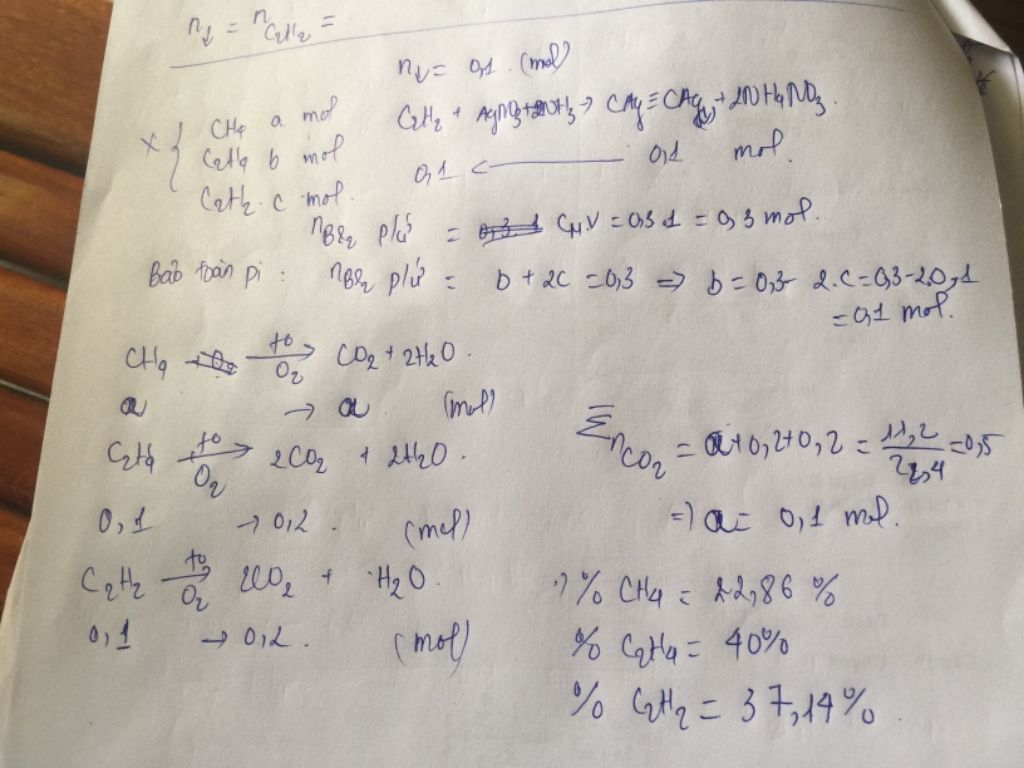 n↓ = nC2H2 =
n↓ = 0,1 (mol)
X { CH4 a mol
C2H4 b mol
C2H2 c mol.
C2H2 + AgNO3 + 2NH3 → CAg≡CAg↓ + 2NH4NO3.
0,1 ← 0,1 mol.
nBr2 p/ứ = CM.V = 0,3.1 = 0,3 mol.
Bảo toàn pi: nBr2 p/ứ = b + 2c = 0,3 ⇒ b = 0,3 - 2.c = 0,3-2.0,1
= 0,1 mol.
CH4 –to/O2→ CO2 + 2H2O.
a → a (mol)
C2H4 –to/O2→ 2CO2 + 2H2O.
0,1 → 0,2. (mol)
C2H2 –to/O2→ 2CO2 + H2O.
0,1 → 0,2. (mol)
Σ nCO2 = a+0,2+0,2 = 11,2/22,4 = 0,5
=) a = 0,1 mol.
% CH4 = 22,86 %
% C2H4 = 40%
% C2H2 = 37,14%.